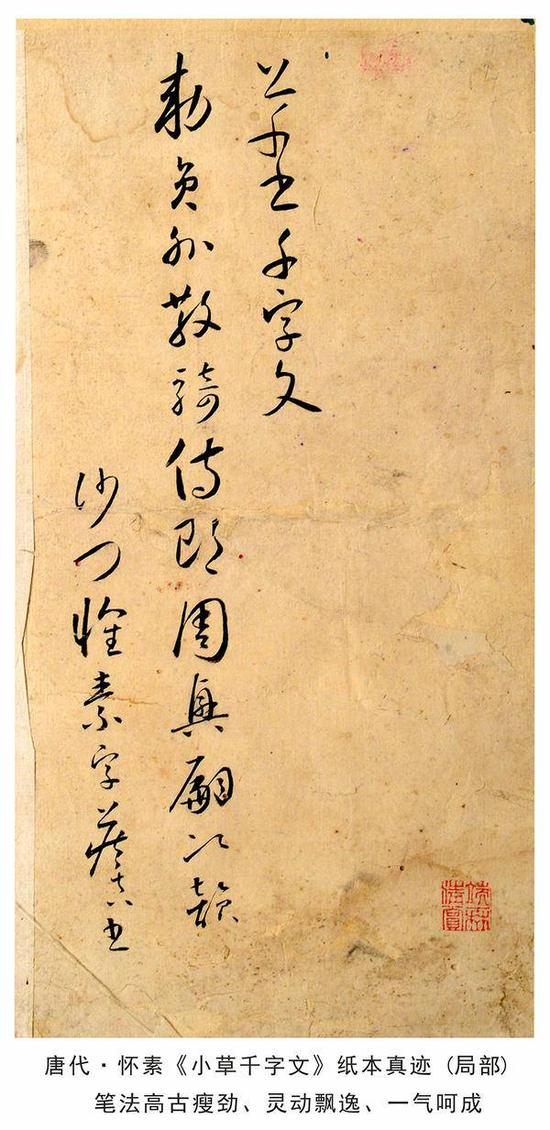 草書千字文
勅員外散騎侍郎周興嗣次韻
沙門懷素字藏真書
唐代·怀素《小草千字文》纸本真迹（局部）
笔法高古瘦劲、灵动飘逸、一气呵成